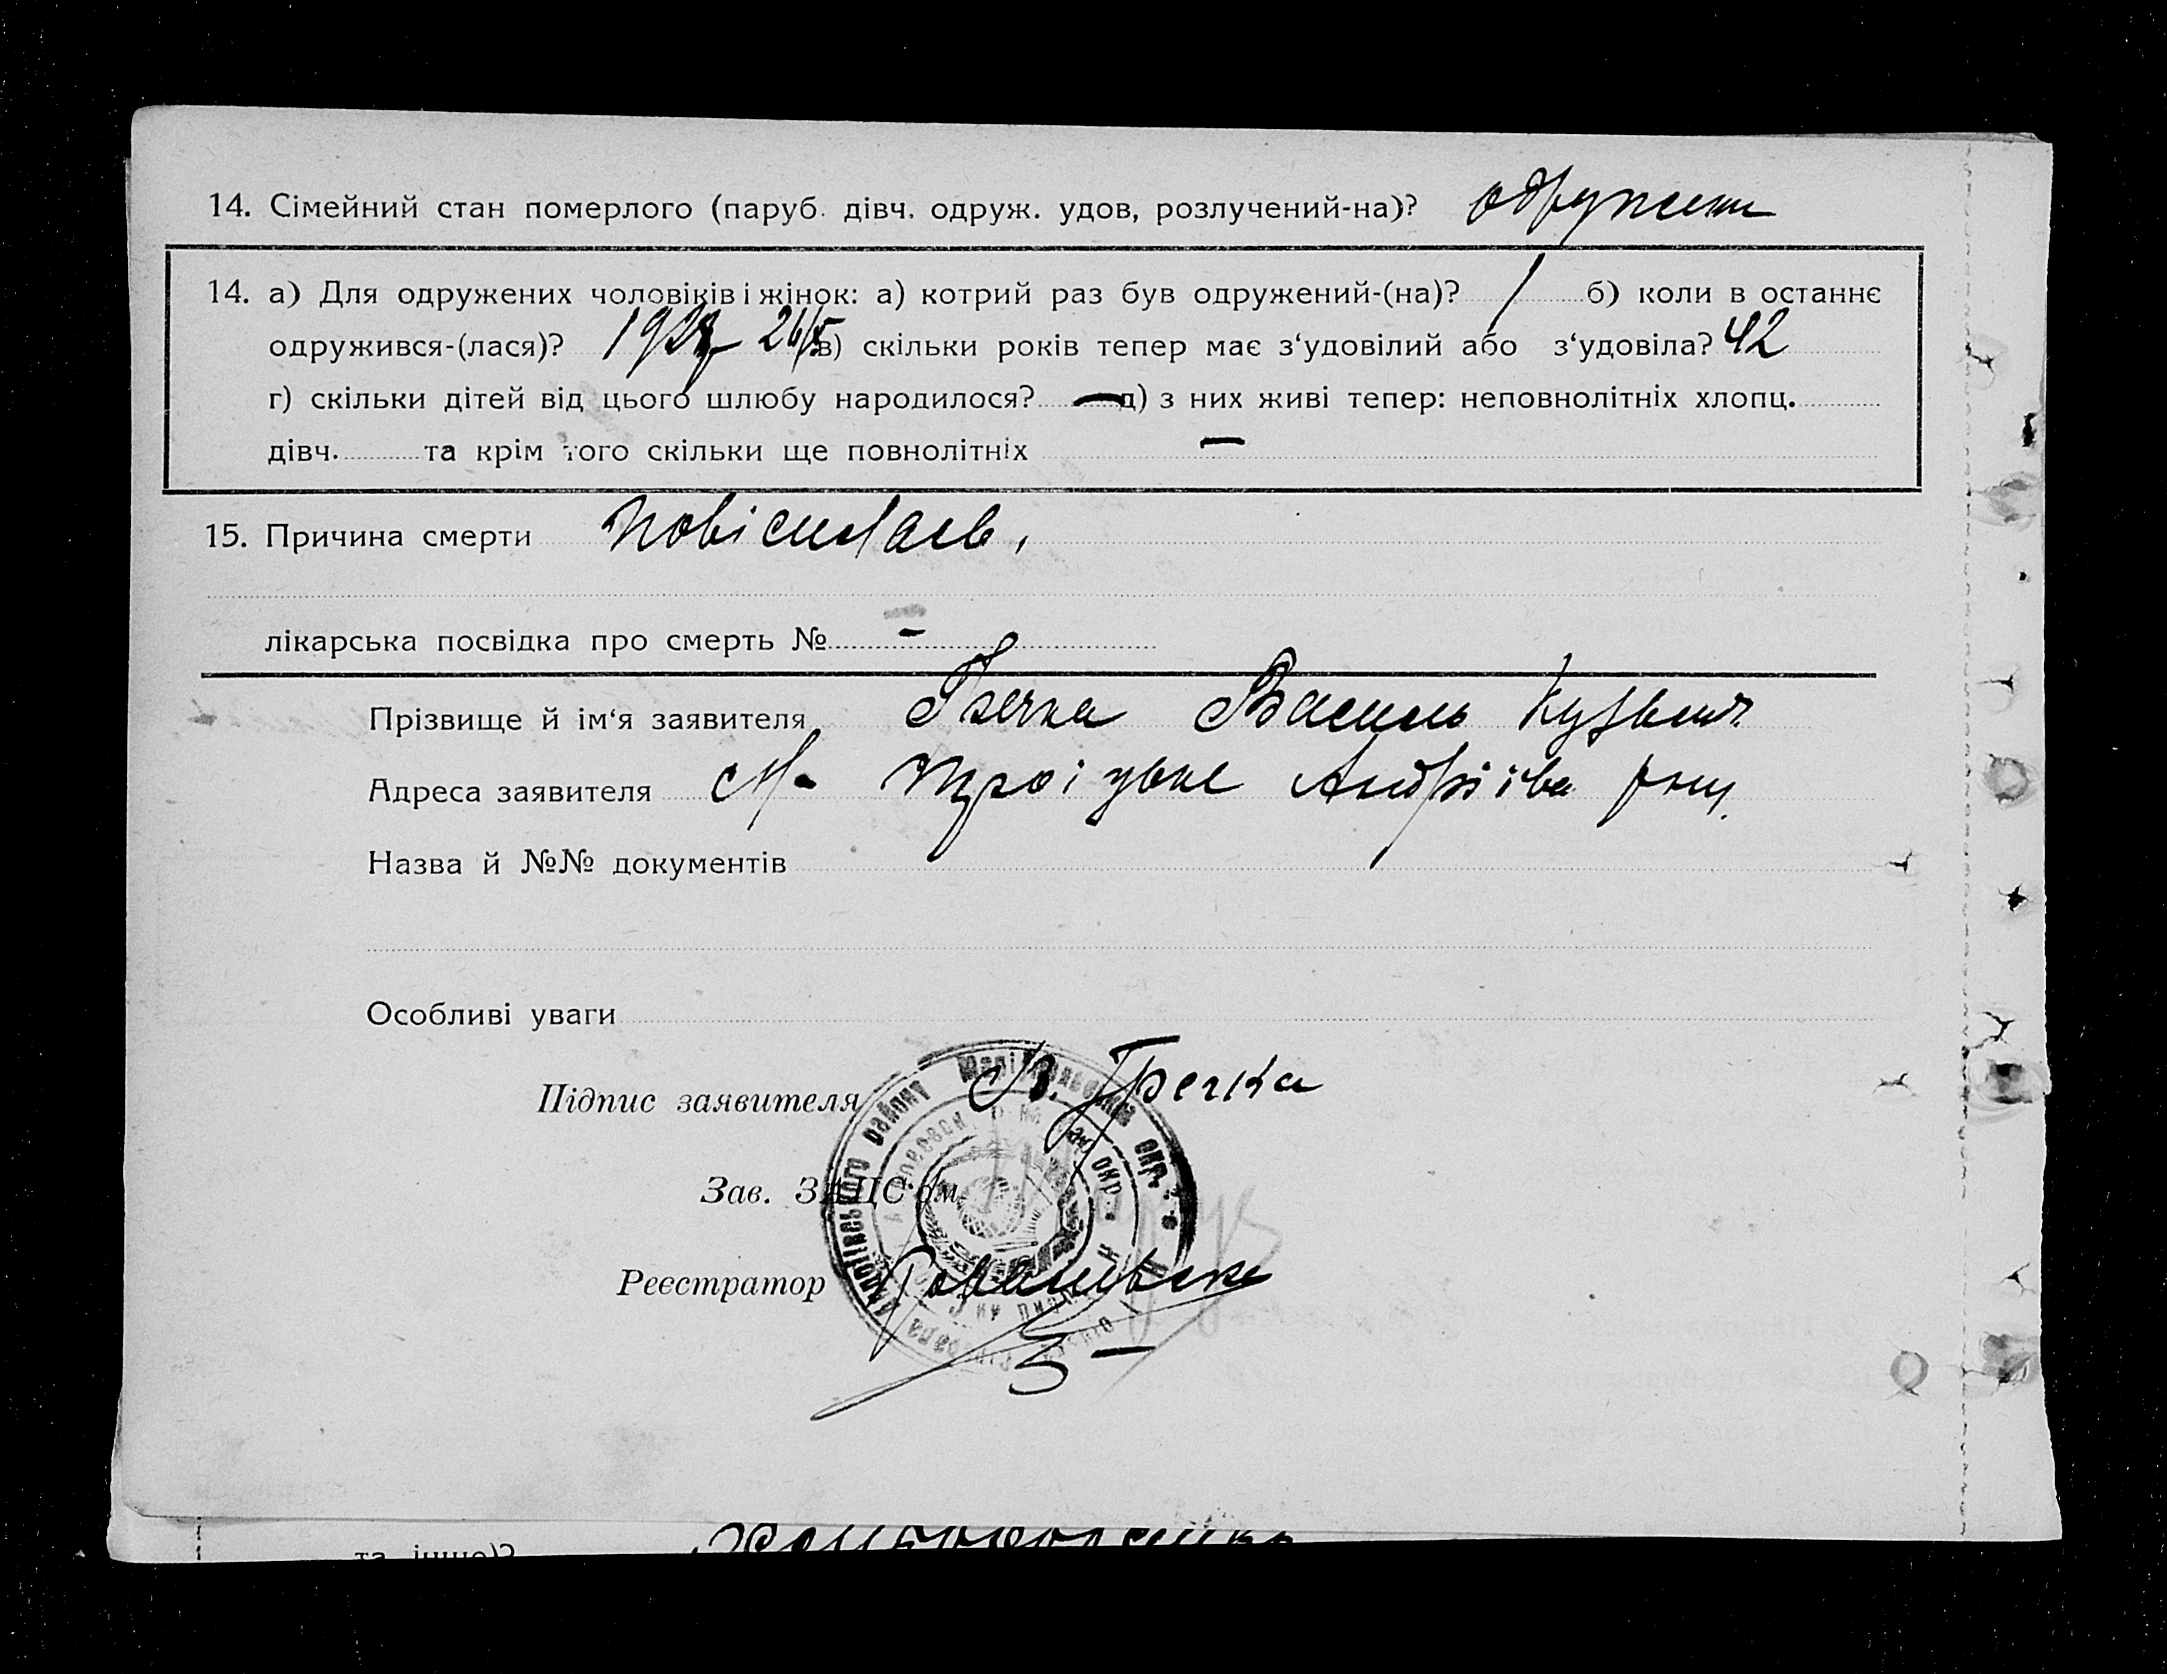 14. Сімейний стан померлого (паруб. дівч. одруж. удов, розлучений-на)? одружени
14. а) Для одружених чоловіків і жінок: а) котрий раз був одружений-(на)? 1 б) коли в останнє
одружився-(лася)? 26/ в) скільки років тепер має з‘удовілий або з‘удовіла? 42
г) скільки дітей від цього шлюбу народилося? — д) з них живі тепер: неповнолітніх хлопц.
дівч. та крім того скільки ще повнолітніх —
15. Причина смерти повісилась,
лікарська посвідка про смерть № –
Прізвище й ім‘я заявителя Гречка Василь Кузьмич
Адреса заявителя М. Троіцьке Андріїв.
Назва й №№ документів
Особливі уваги
Підпис заявителя В. Гречка
Зав. ЗАГС‘ом
Реєстратор
та інше)?